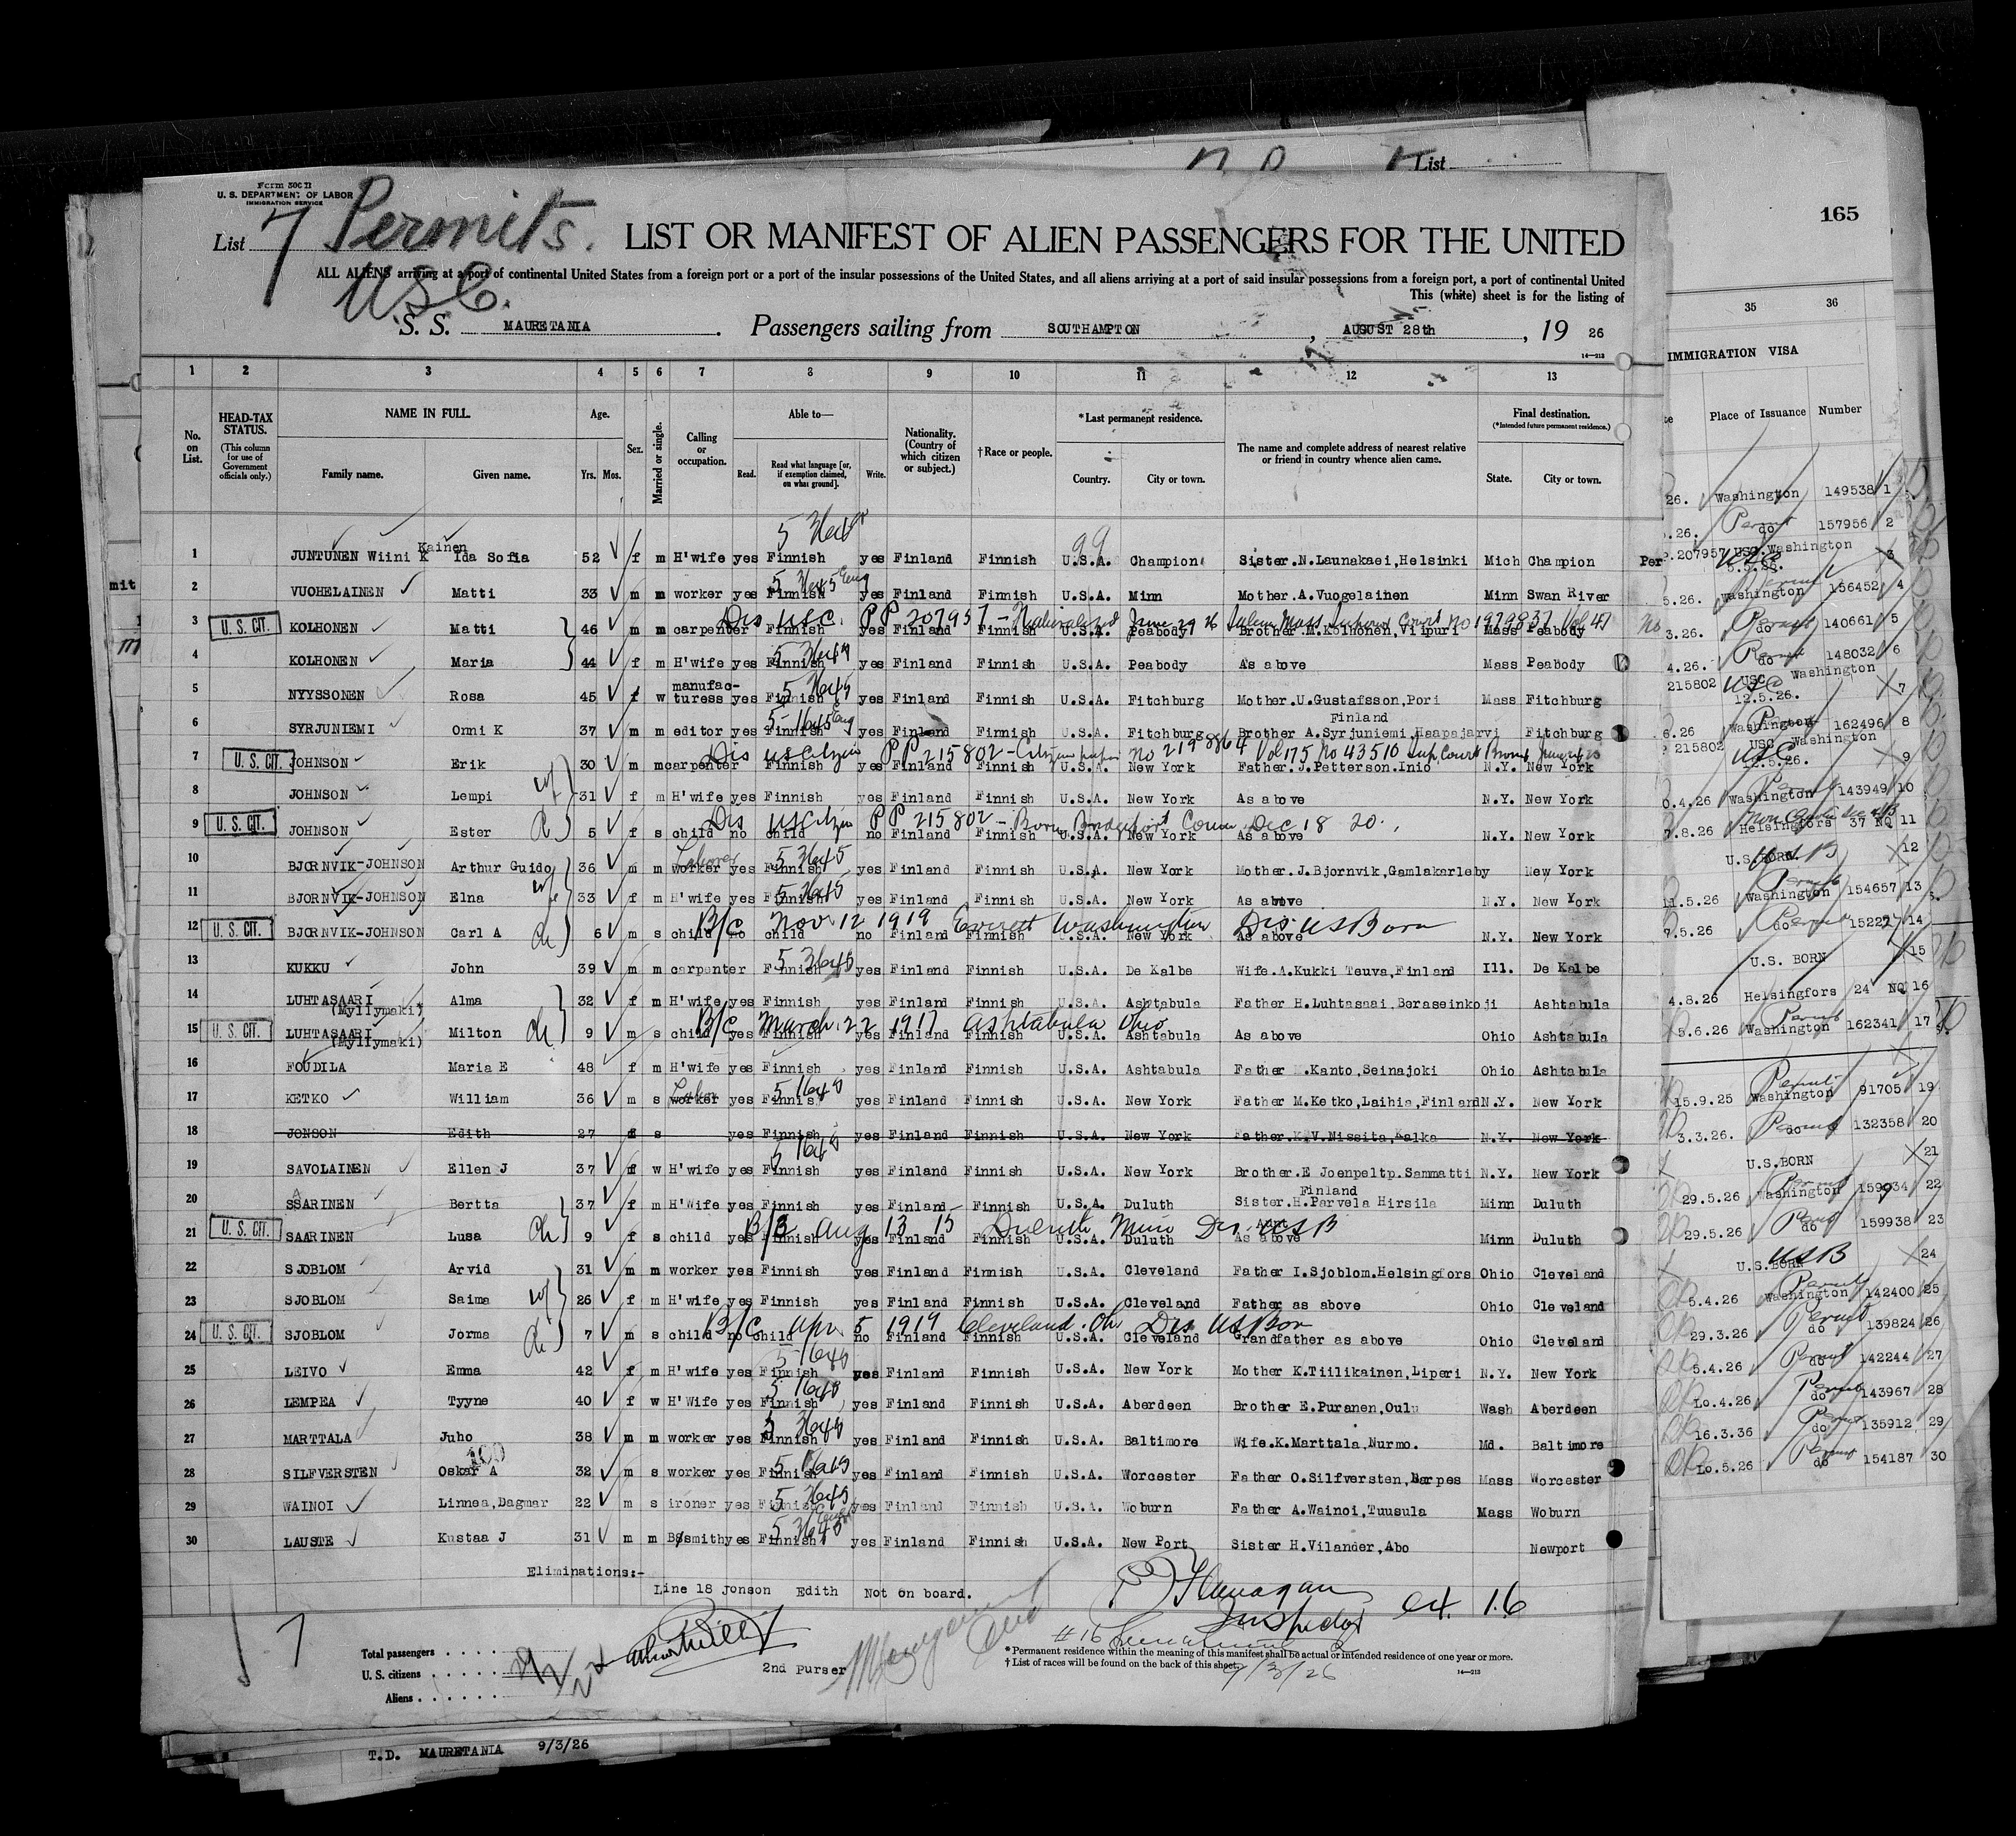 Form 500 B
U. S. DEPARTMENT OF LABOR
IMMIGRATION SERVICE
List 7 Permits. LIST OR MANIFEST OF ALIEN PASSENGERS FOR THE UNITED
USC.
ALL ALIENS arriving at a port of continental United States from a foreign port or a port of the insular possessions of the United States, and all aliens arriving at a port of said insular possessions from a foreign port, a port of continental United
This (white) sheet is for the listing of
S. S. MAURETANIA. Passengers sailing from SOUTHAMPTON, AUGUST 28th, 19 26
14—213
1 2 3 4 5 6 7 8 9 10 11 12 13
No. on List. HEAD-TAX STATUS. (This column for use of Government officials only.) NAME IN FULL. Family name. Given name. Age. Yrs. Mos. Sex. Married or single. Calling or occupation. Able to— Read. Read what language [or, if exemption claimed, on what ground]. Write. Nationality. (Country of which citizen or subject.) †Race or people. *Last permanent residence. Country. City or town. The name and complete address of nearest relative or friend in country whence alien came. Final destination. (*Intended future permanent residence.) State. City or town.
1 JUNTUNEN Wiini K Kainen Ida Sofia 52 f m H'wife yes Finnish yes Finland Finnish U.S.A. Champion Sister.N.Launakaei,Helsinki Mich Champion
2 VUOHELAINEN Matti 33 m m worker yes Finnish yes Finland Finnish U.S.A. Minn Mother.A.Vuogelainen Minn Swan River
3 U. S. CIT. KOLHONEN Matti 46 m m carpenter Finnish yes Finland Finnish U.S.A. Peabody Brother M.Kolhonen,Vilpuri Mass Peabody
Dis USC. PP 207957 - Naturalized June 29 26 Salem Mass Superior Court No 1979837 Vol 47
4 KOLHONEN Maria 44 f m H'wife yes Finnish yes Finland Finnish U.S.A. Peabody As above Mass Peabody
5 NYYSSONEN Rosa 45 f w manufac-turess yes Finnish yes Finland Finnish U.S.A. Fitchburg Mother.U.Gustafsson,Pori Mass Fitchburg
6 SYRJUNIEMI Onni K 37 m m editor yes Finnish yes Finland Finnish U.S.A. Fitchburg Brother A.Syrjuniemi,Haapajarvi Finland Fitchburg
7 U. S. CIT. JOHNSON Erik 30 m m carpenter Finnish yes Finland Finnish U.S.A. New York Father.J.Petterson.Inio N.Y. New York
Dis US Citizen PP 215802 - Citizen No 2198864 Vol 175 No 43510 Sup Court Bronx
8 JOHNSON Lempi wf 31 f m H'wife yes Finnish yes Finland Finnish U.S.A. New York As above N.Y. New York
9 U. S. CIT. JOHNSON Ester ch 5 f s child no child no Finland Finnish U.S.A. New York As above N.Y. New York
Dis US Citizen PP 215802 - Born Bridgeport Conn Dec 18 20.
10 BJORNVIK-JOHNSON Arthur Guido 36 m m worker Laborer yes Finnish yes Finland Finnish U.S.A. New York Mother.J.Bjornvik,Gamlakarleby New York
11 BJORNVIK-JOHNSON Elna wf 33 f m H'wife yes Finnish yes Finland Finnish U.S.A. New York As above N.Y. New York
12 U. S. CIT. BJORNVIK-JOHNSON Carl A ch 6 m s child no child no Finland Finnish U.S.A. New York As above N.Y. New York
B/C Nov 12 1919 Everett Washington Dis US Born
13 KUKKU John 39 m m carpenter Finnish yes Finland Finnish U.S.A. De Kalbe Wife.A.Kukki Teuva,Finland Ill. De Kalbe
14 LUHTASAARI (Myllymaki) Alma 32 f m H'wife yes Finnish yes Finland Finnish U.S.A. Ashtabula Father H.Luhtasaai,Beraseinkoji Ashtabula
15 U. S. CIT. LUHTASAARI (Myllymaki) Milton ch 9 m s child yes Finnish yes Finland Finnish U.S.A. Ashtabula As above Ohio Ashtabula
B/C March 22 1917 Ashtabula Ohio
16 FOUDILA Maria E 48 f m H'wife yes Finnish yes Finland Finnish U.S.A. Ashtabula Father .Kanto,Seinajoki Ohio Ashtabula
17 KETKO William 36 m s worker Labor yes Finnish yes Finland Finnish U.S.A. New York Father M.Ketko,Laihia,Finland N.Y. New York
18 JONSON Edith 27 f s yes Finnish yes Finland Finnish U.S.A. New York Father.K.V.Nissita,Kalka N.Y. New York
19 SAVOLAINEN Ellen J 37 f w H'wife yes Finnish yes Finland Finnish U.S.A. New York Brother.E Joenpeltp.Sammatti N.Y. New York
20 SSARINEN Bertta 37 f m H'Wife yes Finnish yes Finland Finnish U.S.A. Duluth Sister.H.Parvela Hirsila Finland Minn Duluth
21 U. S. CIT. SAARINEN Lusa ch 9 f s child yes Finnish yes Finland Finnish U.S.A. Duluth Aunt As above Minn Duluth
B/C Aug 13 15 Duluth Minn Dis USB
22 SJOBLOM Arvid 31 m m worker yes Finnish yes Finland Finnish U.S.A. Cleveland Father I.Sjoblom.Helsingfors Ohio Cleveland
23 SJOBLOM Saima wf 26 f m H'wife yes Finnish yes Finland Finnish U.S.A. Cleveland Father as above Ohio Cleveland
24 U. S. CIT. SJOBLOM Jorma ch 7 m s child no child no Finland Finnish U.S.A. Cleveland Grandfather as above Ohio Cleveland
B/C Apr 5 1919 Cleveland. Oh Dis US Born
25 LEIVO Emma 42 f m H'wife yes Finnish yes Finland Finnish U.S.A. New York Mother K.Tiilikainen,Liperi N.Y. New York
26 LEMPEA Tyyne 40 f w H'Wife yes Finnish yes Finland Finnish U.S.A. Aberdeen Brother E.Puranen,Oulu Wash Aberdeen
27 MARTTALA Juho 38 m m worker yes Finnish yes Finland Finnish U.S.A. Baltimore Wife.K.Marttala,Nurmo. Md. Baltimore
28 SILFVERSTEN Oskar A 100 32 m s worker yes Finnish yes Finland Finnish U.S.A. Worcester Father O.Silfversten, Mass Worcester
29 WAINOI Linnea,Dagmar 22 m s ironer yes Finnish yes Finland Finnish U.S.A. Woburn Father A.Wainoi,Tuusula Mass Woburn
30 LAUSTE Kustaa J 31 m m B/smith yes Finnish yes Finland Finnish U.S.A. New Port Sister H.Vilander,Abo Newport
Eliminations:-
Line 18 Jonson Edith Not on board.
Flanagan
Inspector
7
Total passengers
U. S. citizens
Aliens
2nd Purser
* Permanent residence within the meaning of this manifest shall be actual or intended residence of one year or more.
† List of races will be found on the back of this sheet.
9/3/26
14—213
T.D. MAURETANIA 9/3/26
List
165
35 36
IMMIGRATION VISA
Place of Issuance Number
26. Washington 149538 1
.26. Permit do 157956 2
P.207957 USC. Washington 5.5.26. 3
5.26. Washington 156452 4
3.26. Permit do 140661 5
4.26. Permit do 148032 6
215802 USC Washington 12.5.26. 7
6.26 Washington 162496 8
P 215802 USC Washington 12.5.26. 9
0.4.26 Washington 143949 10
7.8.26 Helsingfors 37 NQ 11
U.S.BORN 12
11.5.26 Permit Washington 154657 13
7.5.26 do Permit 152227 14
U.S. BORN 15
4.8.26 Helsingfors 24 NQ 16
5.6.26 Permit Washington 162341 17
15.9.25 Permit Washington 91705 19
3.3.26. Permit do 132358 20
U.S.BORN 21
29.5.26 Permit Washington 159934 22
29.5.26 Permit do 159938 23
U.S.BORN USB 24
5.4.26 Permit Washington 142400 25
29.3.26 Permit do 139824 26
5.4.26 Permit do 142244 27
Lo.4.26 Permit do 143967 28
16.3.36 Permit do 135912 29
Lo.5.26 Permit do 154187 30